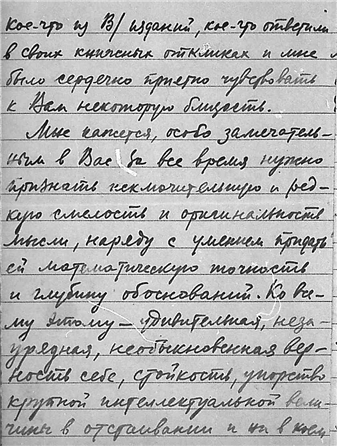 кое-что из В/изданий, кое-что ответили
в своих книжных откликах и мне
было сердечно приятно чувствовать
к Вам некоторую близость.
Мне кажется, особо замечатель-
ным в Вас за все время нужно
признать исключительную и ред-
кую смелость и оригинальность
мысли, наряду с умением придать
ей математическую точность
и глубину обоснований. Ко все-
му этому — удивительная, неза-
урядная, необыкновенная вер-
ность себе, стойкость, упорство
крупной интеллектуальной вели-
чины в отстаивании и ни в коем